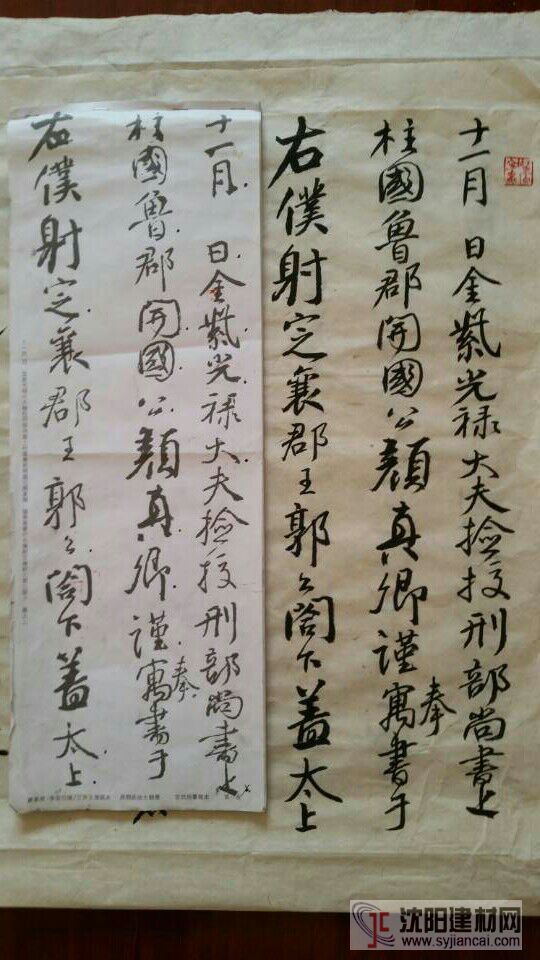 十一月 日金紫光禄大夫撿挍刑部尚書上
柱國魯郡開國公顏真卿謹奉寓書于
右僕射定襄郡王郭公閤下蓋太上
十一月 日金紫光禄大夫撿挍刑部尚書上
柱國魯郡開國公顏真卿謹奉寓書于
右僕射定襄郡王郭公閤下蓋太上
沈阳建材网
www.syjiancai.com